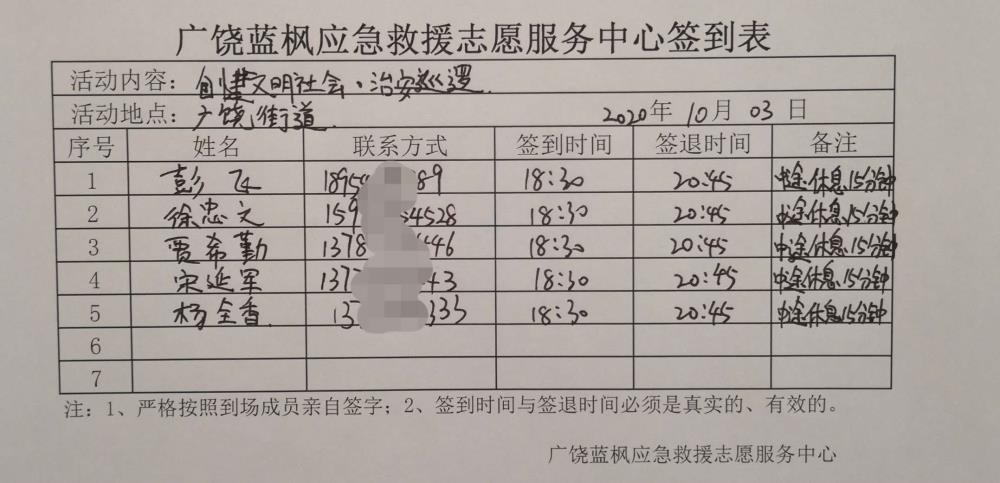 广饶蓝枫应急救援志愿服务中心签到表
活动内容: 创建文明社会、治安巡逻.
活动地点: 广饶街道. 2020年 10月 03日
序号 姓名 联系方式 签到时间 签退时间 备注
1 彭飞 1895 89 18:30 20:45 中途休息15分钟
2 徐忠文 159 4528 18:30 20:45 中途休息15分钟
3 贾希勤 1378 446 18:30 20:45 中途休息15分钟
4 宋延军 137 43 18:30 20:45 中途休息15分钟
5 杨全香. 13 333 18:30 20:45 中途休息15分钟
6
7
注:1、严格按照到场成员亲自签字;2、签到时间与签退时间必须是真实的、有效的。
广饶蓝枫应急救援志愿服务中心